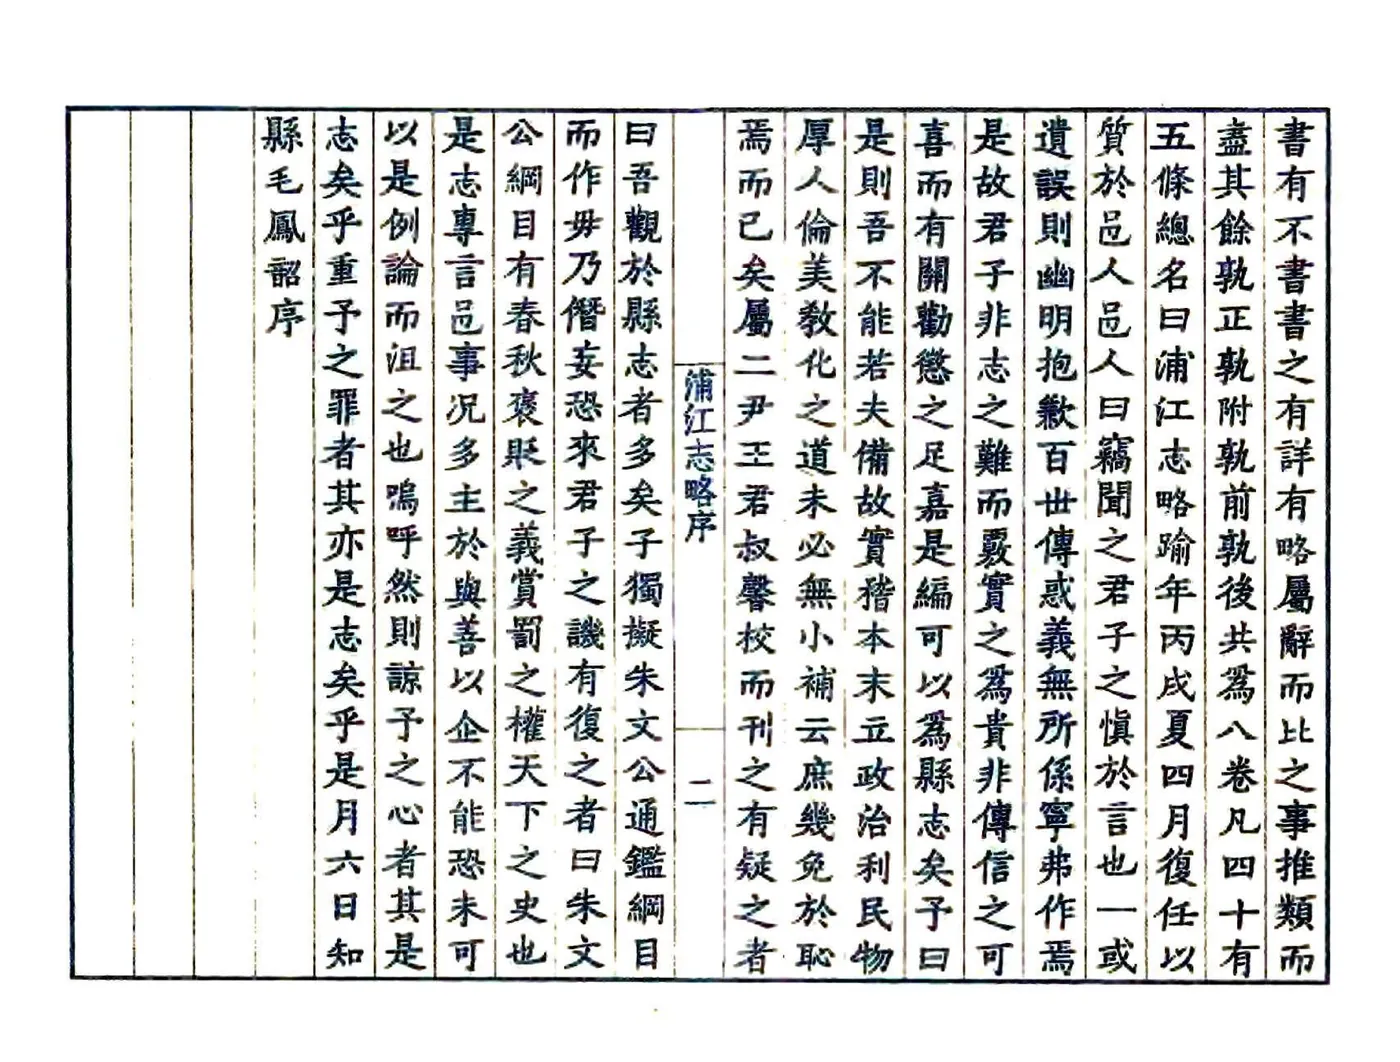 書有不書書之有詳有略屬辭而比之事推類而
盡其餘孰正孰附孰前孰後共爲八卷凡四十有
五條總名曰浦江志略踰年丙戌夏四月復任以
質於邑人邑人曰竊聞之君子之愼於言也一或
遺誤則幽明抱歉百世傳惑義無所係寧弗作焉
是故君子非志之難而覈實之爲貴非傳信之可
喜而有關勸懲之足嘉是編可以爲縣志矣予曰
是則吾不能若夫備故實稽本末立政治利民物
厚人倫美敎化之道未必無小補云庶幾免於恥
焉而已矣屬二尹王君叔馨校而刊之有疑之者
浦江志略序
二
曰吾觀於縣志者多矣子獨擬朱文公通鑑綱目
而作毋乃僭妄恐來君子之譏有復之者曰朱文
公綱目有春秋褒貶之義賞罰之權天下之史也
是志專言邑事况多主於與善以企不能恐未可
以是例論而沮之也嗚呼然則諒予之心者其是
志矣乎重予之罪者其亦是志矣乎是月六日知
縣毛鳳韶序